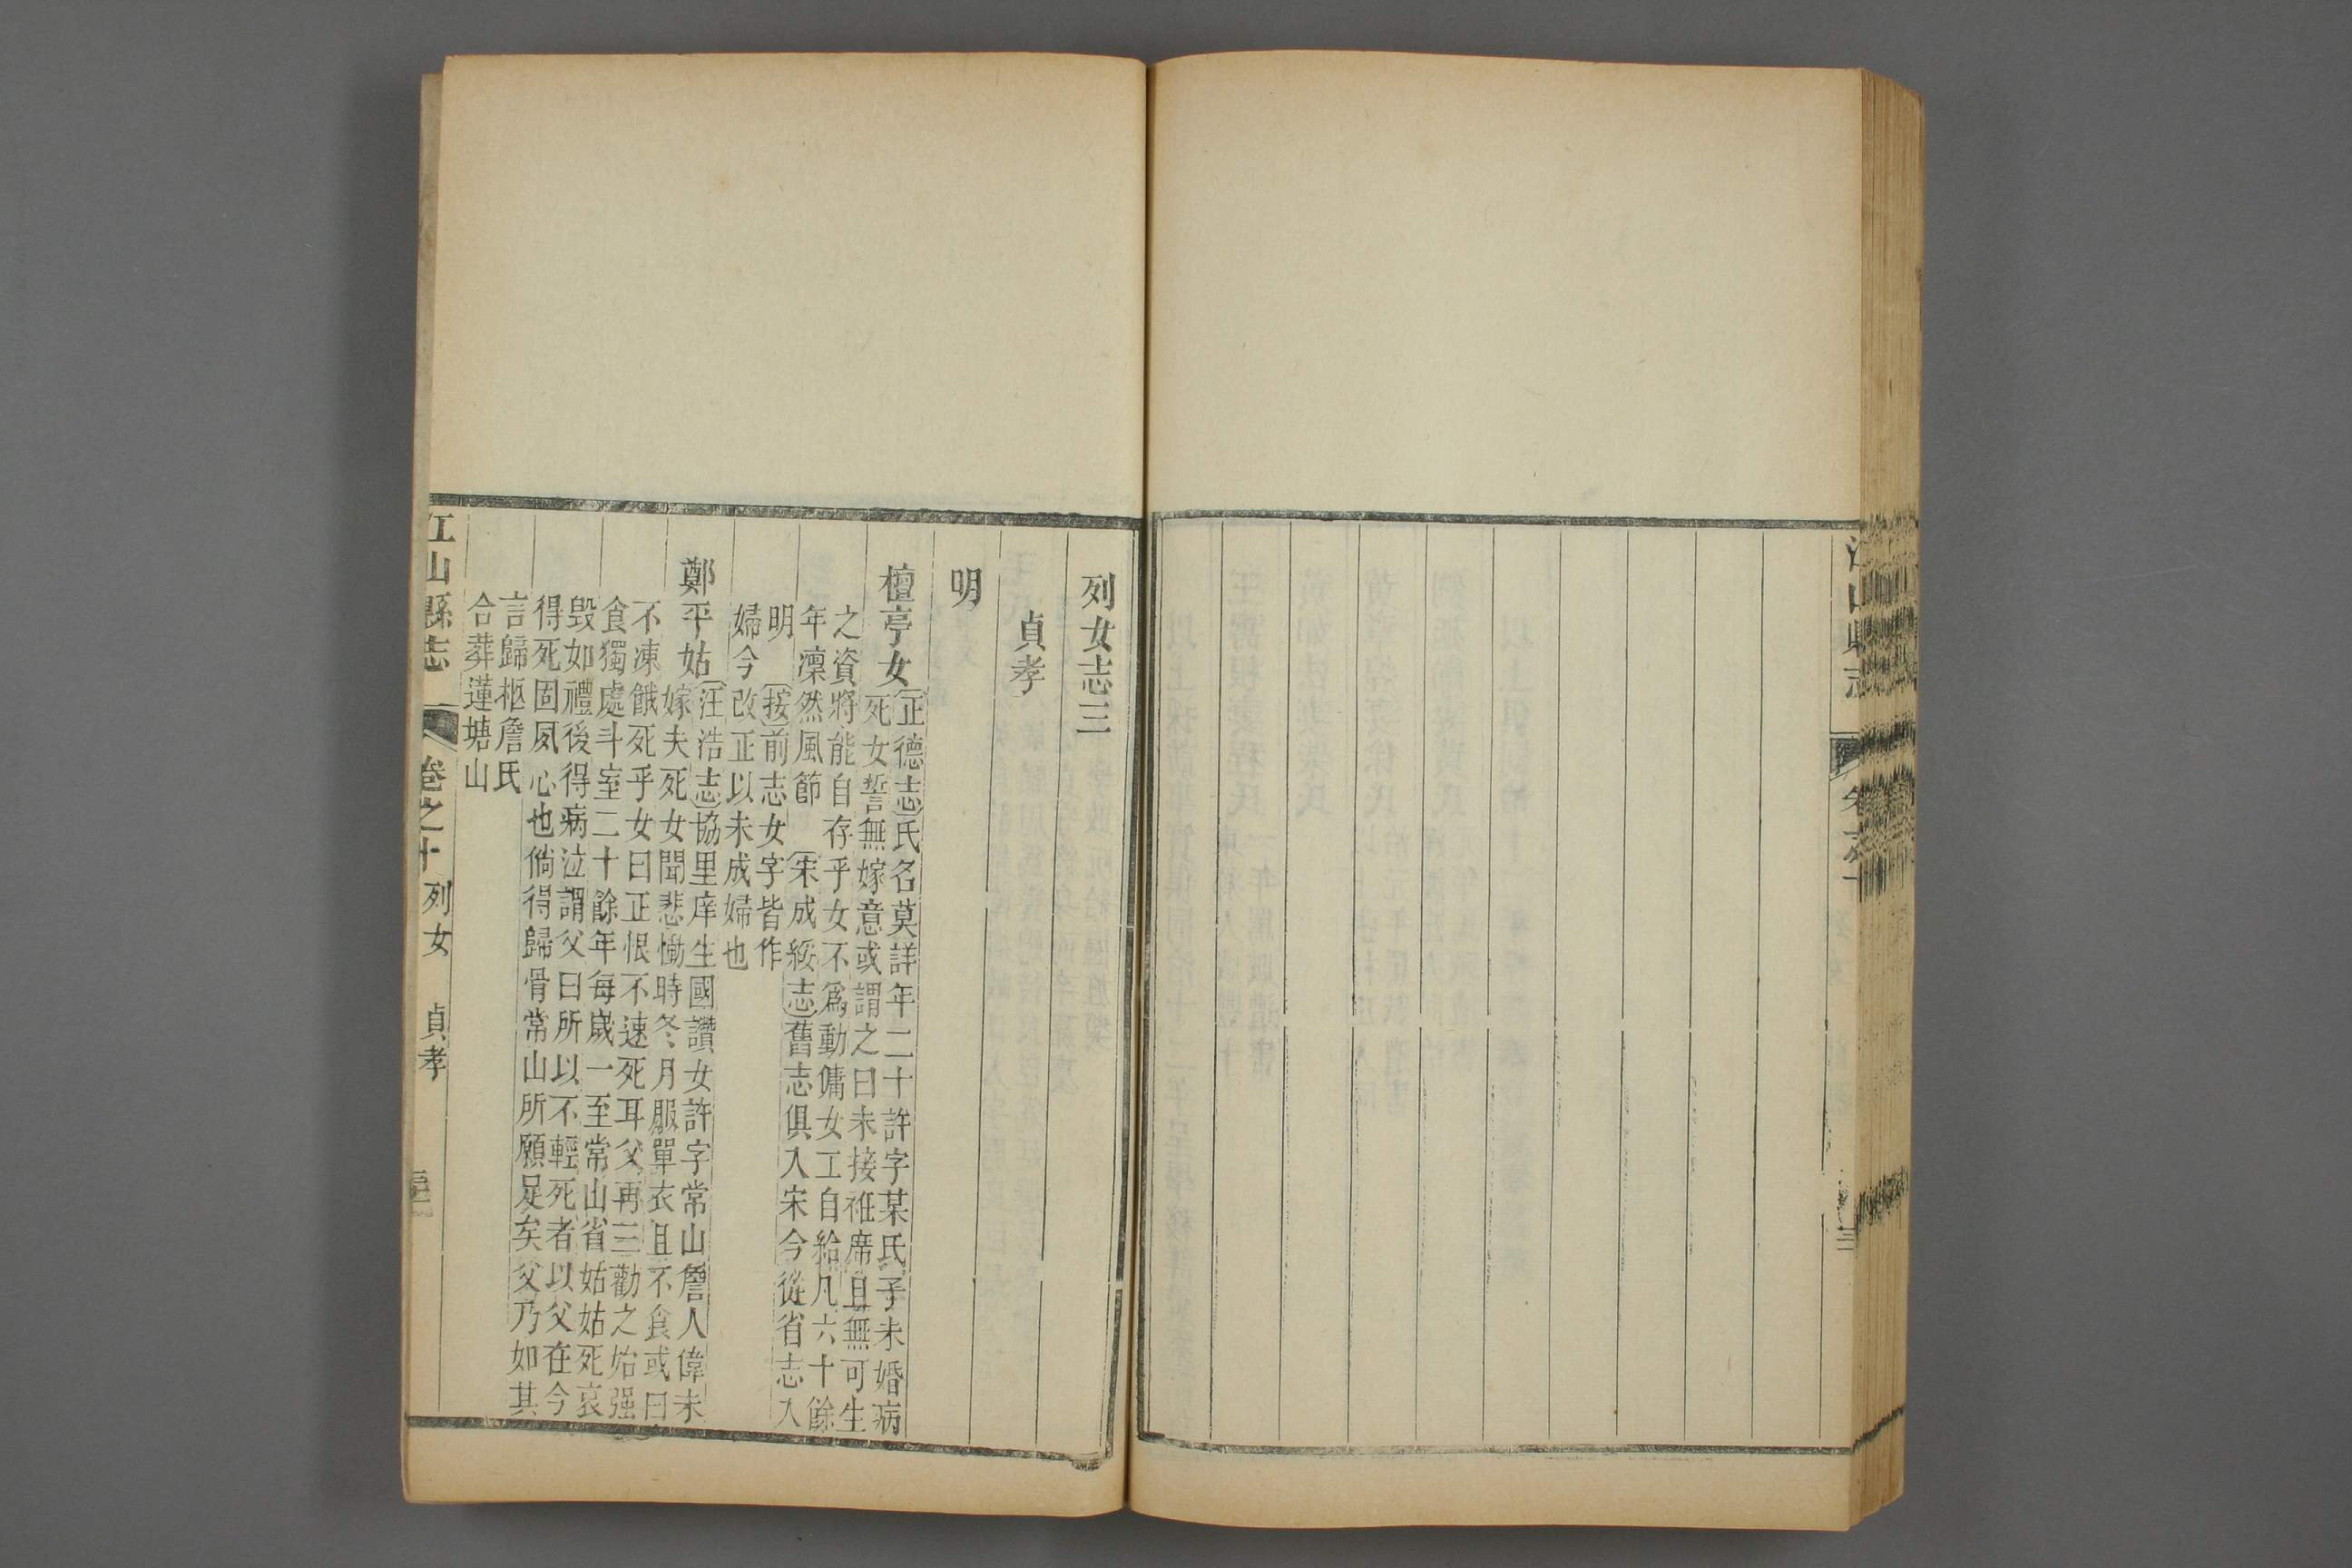 列女志三
貞孝
明
檀亭女
正德志氏名莫詳年二十許字某氏子未婚病
死女誓無嫁意或謂之曰未接袵席且無可生
之資將能自存乎女不爲動傭女工自給凡六十餘
年凜然風節 宋成綏志舊志俱入宋今從省志入
明 按前志女字皆作
婦今改正以未成婦也
鄭平姑
汪浩志協里庠生國讚女許字常山詹人偉未
嫁夫死女聞悲慟時冬月服單衣且不食或曰
不凍餓死乎女曰正恨不速死耳父再三勸之始强
食獨處斗室二十餘年每歲一至常山省姑姑死哀
毁如禮後得病泣謂父曰所以不輕死者以父在今
得死固夙心也倘得歸骨常山所願足矣父乃如其
言歸柩詹氏
合葬蓮塘山
江山縣志
卷之十
列女
貞孝